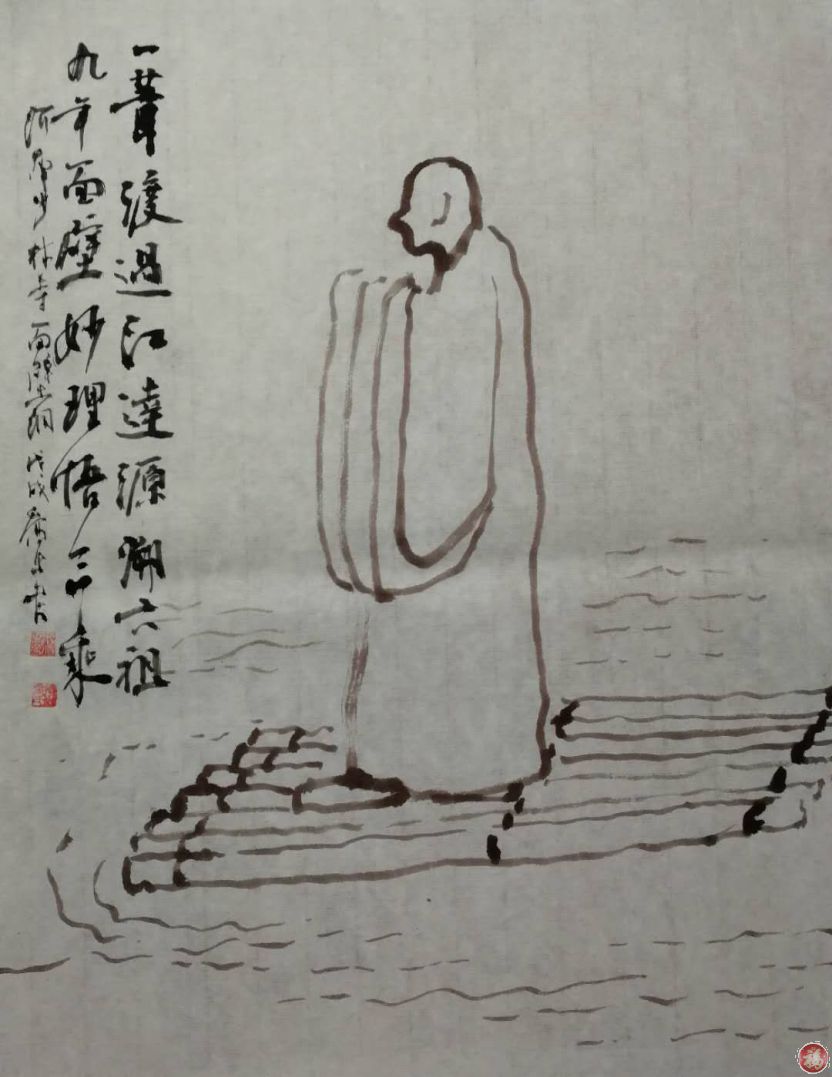 一葦渡過江達源溯六祖
九年面壁妙理悟三乘
林寺面壁洞戊戌書
福